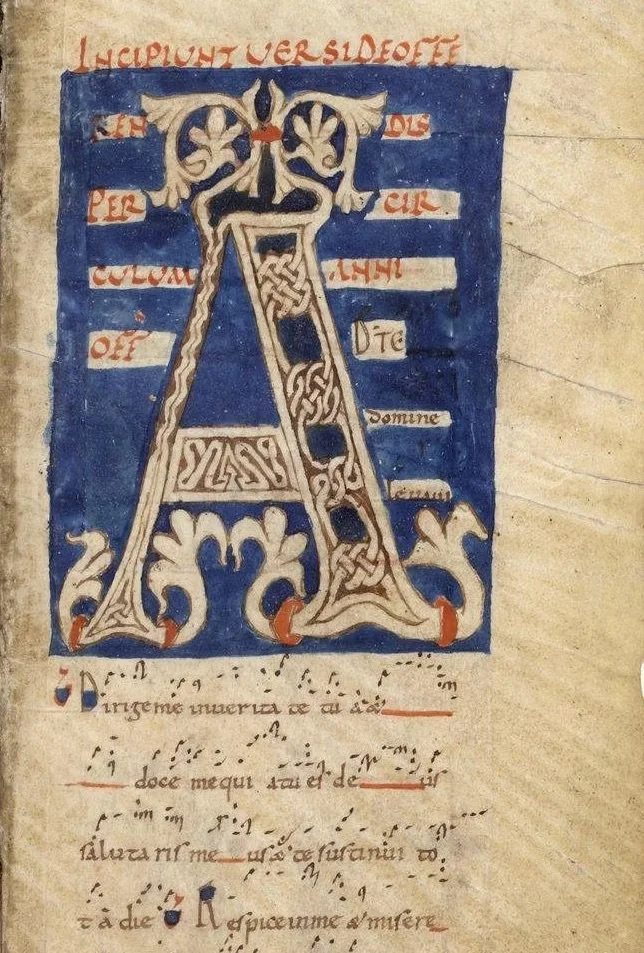 INCIPIUNT UERSI DE OFFE
REN DIS
PER CIR
CULUM ANNI
OFF A D TE
domine
leuaui
V Dirige me inuerita te tu a &
doce me qui a tu es de us
saluta ris me us & te sustinui to
ta die V Respice inme & misere